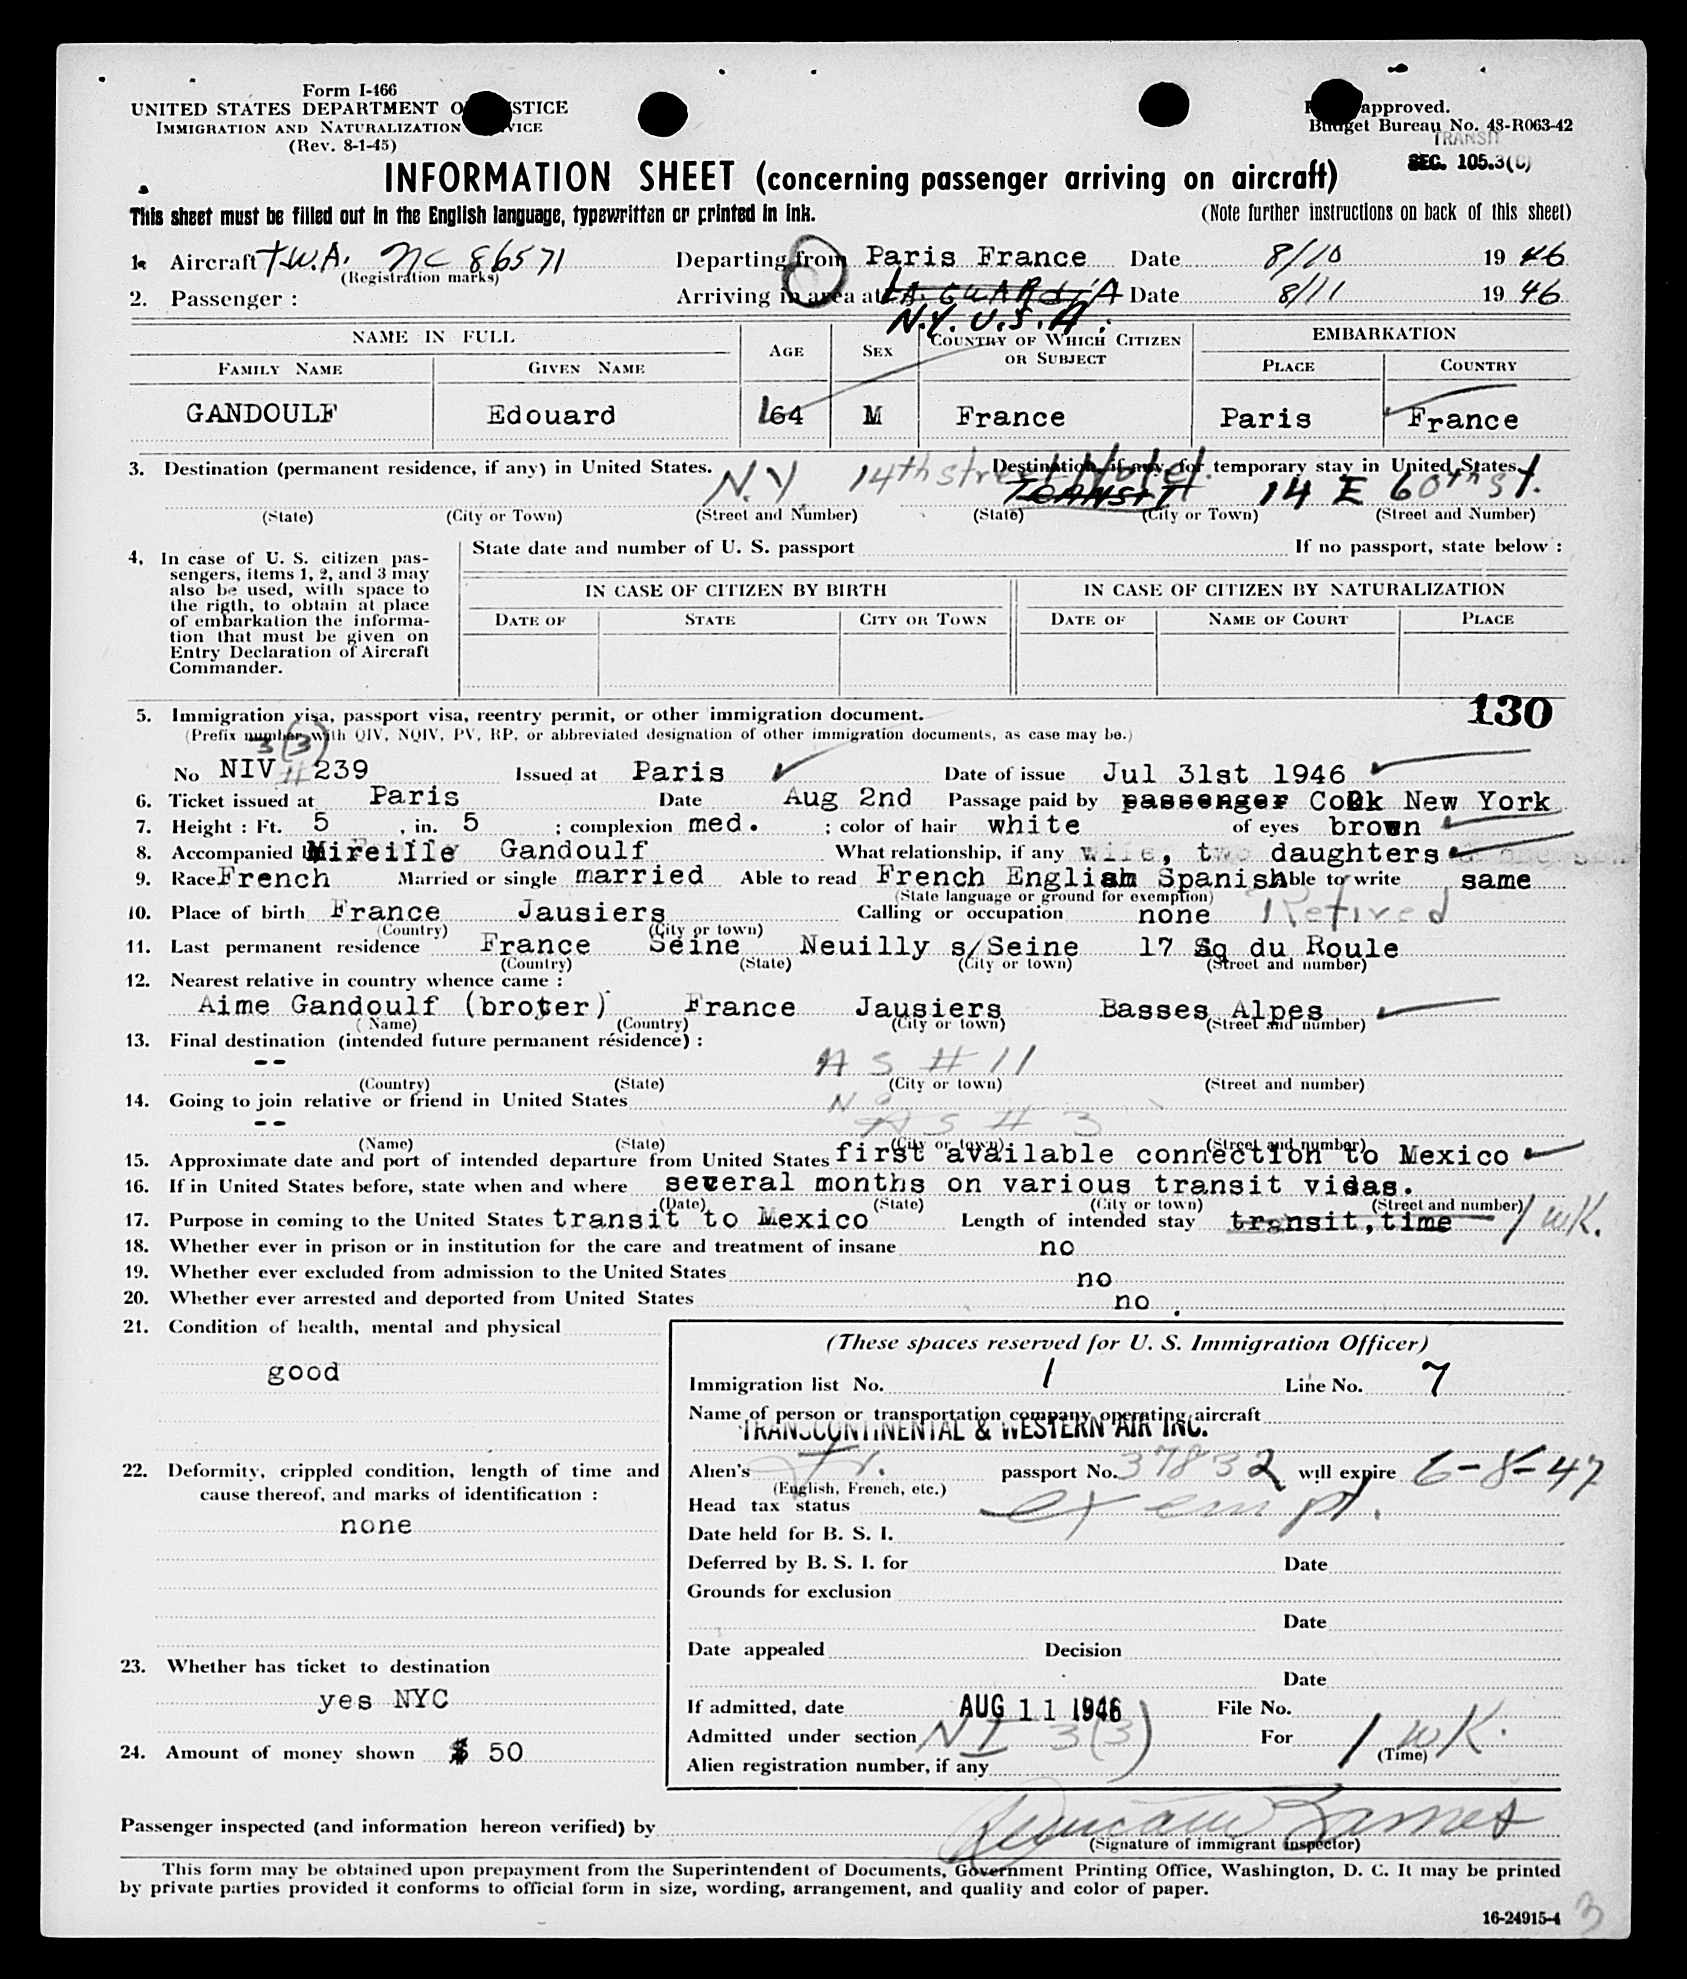 Form I-466
UNITED STATES DEPARTMENT O STICE
IMMIGRATION AND NATURALIZATION VICE
(Rev. 8-1-45)
approved.
Budget Bureau No. 48-R063-42
TRANSIT
SEC. 105.3(C)
INFORMATION SHEET (concerning passenger arriving on aircraft)
This sheet must be filled out in the English language, typewritten or printed in ink.
(Note further instructions on back of this sheet)
1. Aircraft T.W.A. NC 86571 Departing from Paris France Date 8/10 19 46
(Registration marks)
2. Passenger : Arriving in area at LA GUARDIA Date 8/11 19 46
N.Y. U.S.A.
NAME IN FULL AGE SEX COUNTRY OF WHICH CITIZEN OR SUBJECT EMBARKATION
FAMILY NAME GIVEN NAME PLACE COUNTRY
GANDOULF Edouard 64 M France Paris France
3. Destination (permanent residence, if any) in United States. Destination, if any, for temporary stay in United States.
N.Y. 14th street Hotel.
TRANSIT 14 E 60th St.
(State) (City or Town) (Street and Number) (State) (City or Town) (Street and Number)
4. In case of U. S. citizen pas-
sengers, items 1, 2, and 3 may
also be used, with space to
the rigth, to obtain at place
of embarkation the informa-
tion that must be given on
Entry Declaration of Aircraft
Commander.
State date and number of U. S. passport If no passport, state below :
IN CASE OF CITIZEN BY BIRTH IN CASE OF CITIZEN BY NATURALIZATION
DATE OF STATE CITY OR TOWN DATE OF NAME OF COURT PLACE
130
5. Immigration visa, passport visa, reentry permit, or other immigration document.
(Prefix number with QIV, NQIV, PV, RP, or abbreviated designation of other immigration documents, as case may be.)
3(3)
No NIV # 239 Issued at Paris Date of issue Jul 31st 1946
6. Ticket issued at Paris Date Aug 2nd Passage paid by passenger Cook New York
7. Height : Ft. 5, in. 5 ; complexion med. ; color of hair white of eyes brown
8. Accompanied by Mireille Gandoulf What relationship, if any wife, two daughters
9. Race French Married or single married Able to read French English Spanish Able to write same
(State language or ground for exemption)
10. Place of birth France Jausiers Calling or occupation none Retired
(Country) (City or town)
11. Last permanent residence France Seine Neuilly s/Seine 17 Sq du Roule
(Country) (State) (City or town) (Street and number)
12. Nearest relative in country whence came :
Aime Gandoulf (broter) France Jausiers Basses Alpes
(Name) (Country) (City or town) (Street and number)
13. Final destination (intended future permanent résidence) :
-- AS # 11
(Country) (State) (City or town) (Street and number)
14. Going to join relative or friend in United States No
-- AS # 3
(Name) (State) (City or town) (Street and number)
15. Approximate date and port of intended departure from United States first available connection to Mexico
16. If in United States before, state when and where several months on various transit visas.
(Date) (State) (City or town) (Street and number)
17. Purpose in coming to the United States transit to Mexico Length of intended stay transit,time 1 wk.
18. Whether ever in prison or in institution for the care and treatment of insane no
19. Whether ever excluded from admission to the United States no
20. Whether ever arrested and deported from United States no .
21. Condition of health, mental and physical
good
22. Deformity, crippled condition, length of time and
cause thereof, and marks of identification :
none
23. Whether has ticket to destination
yes NYC
24. Amount of money shown $ 50
(These spaces reserved for U. S. Immigration Officer)
Immigration list No. 1 Line No. 7
Name of person or transportation company operating aircraft
TRANSCONTINENTAL & WESTERN AIR INC.
Alien's Fr. passport No. 37832 will expire 6-8-47
(English, French, etc.)
Head tax status exempt.
Date held for B. S. I.
Deferred by B. S. I. for Date
Grounds for exclusion
Date
Date appealed Decision
Date
If admitted, date AUG 11 1946 File No.
Admitted under section NI 3(3) For 1 wk.
(Time)
Alien registration number, if any
Passenger inspected (and information hereon verified) by
(Signature of immigrant inspector)
This form may be obtained upon prepayment from the Superintendent of Documents, Government Printing Office, Washington, D. C. It may be printed
by private parties provided it conforms to official form in size, wording, arrangement, and quality and color of paper.
16-24915-4
3